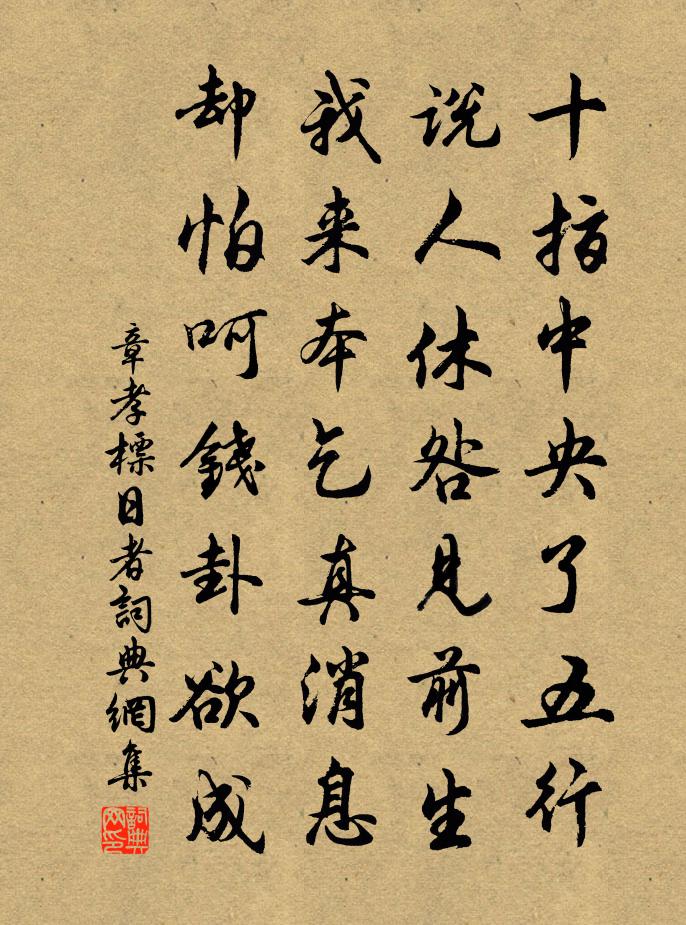 十指中央了五行
说人休咎见前生
我来本乞真消息
却怕呵錢卦欲成
章孝標日者詞典網集
詞典网印